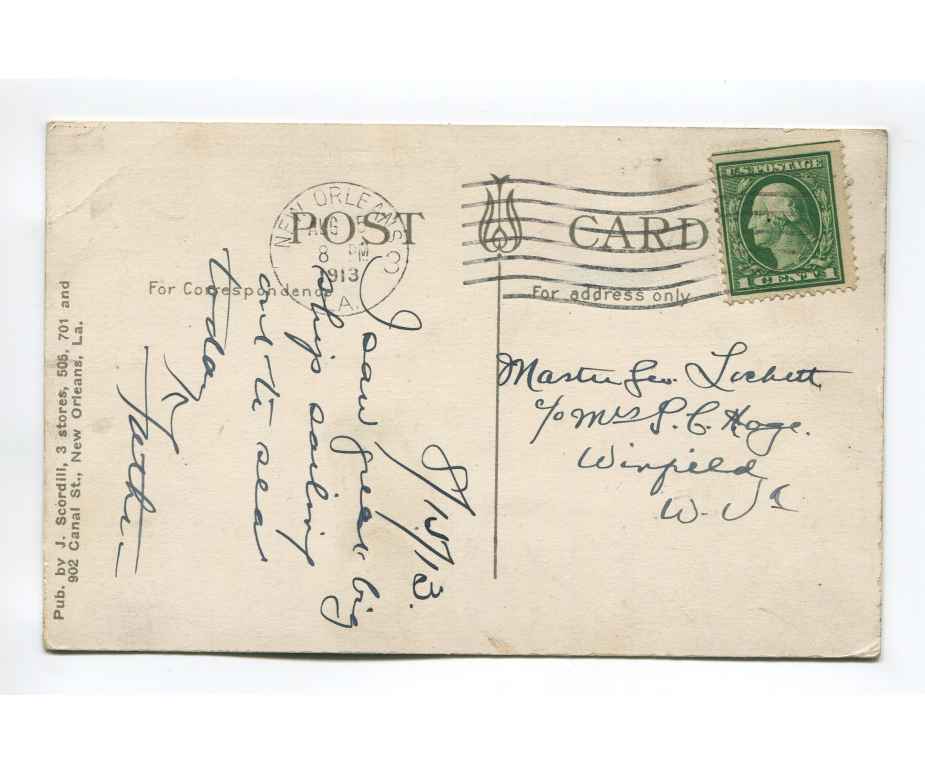 POST CARD
For Correspondence
For address only
NEW ORLEANS
AUG 5
8 PM
1913
LA.
U.S. POSTAGE
1 CENT 1
8/5/13.
I saw great big
ships sailing
out to sea
today
Father
Master Geo. Lockett
c/o Mrs S. C. Hoge.
Winfield
W. Va
Pub. by J. Scordill, 3 stores, 505, 701 and
902 Canal St., New Orleans, La.